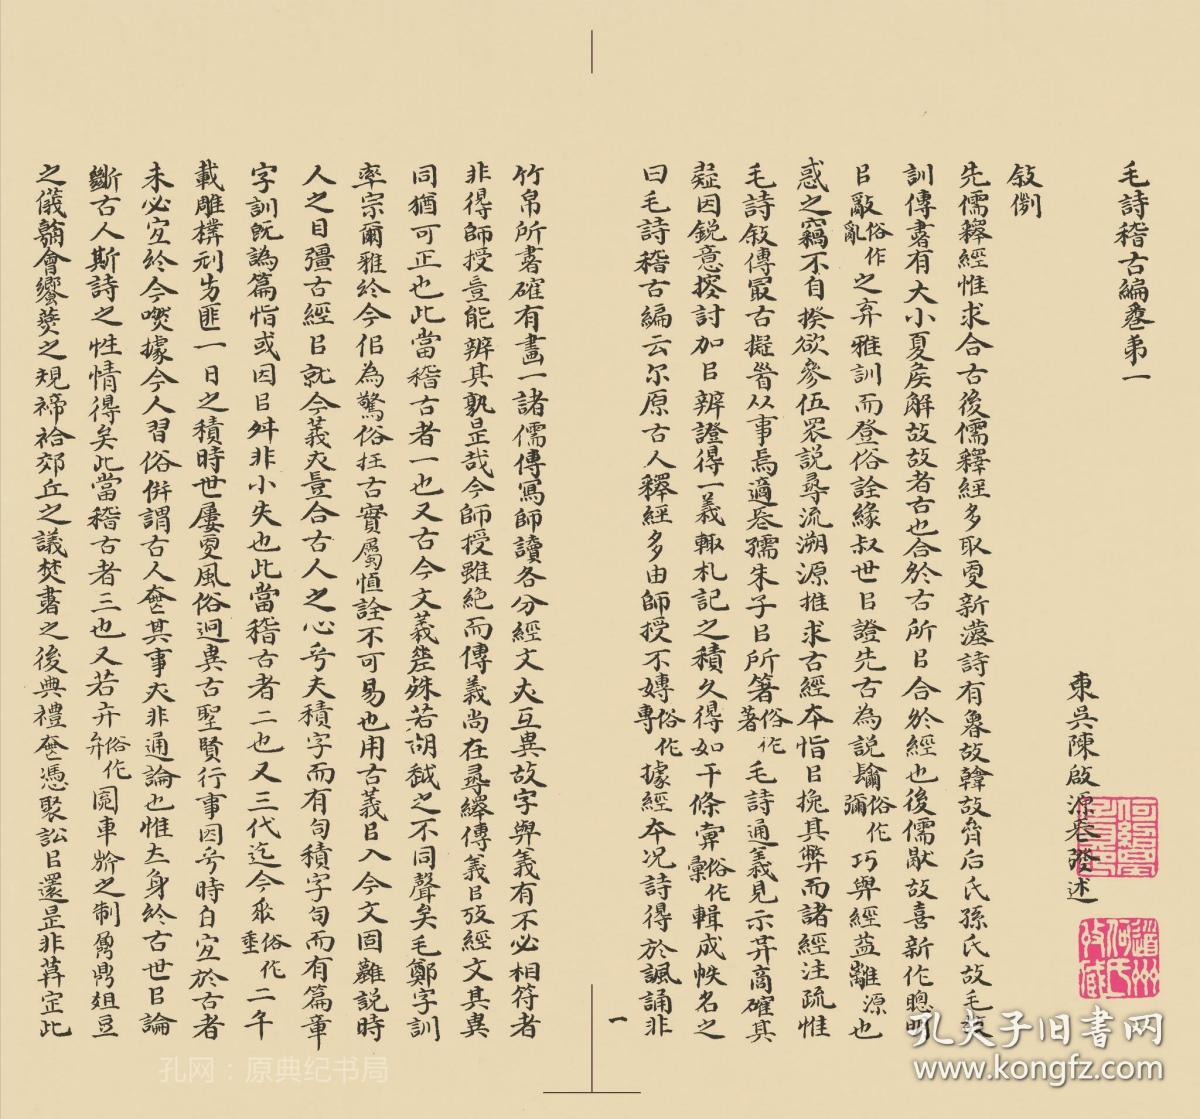 毛詩稽古編卷弟一
東吳陳啟源長發述
敍例
先儒釋經惟求合古後儒釋經多取更新漢詩有魯故韓故齊后氏孫氏故毛故
訓傳書有大小夏矦解故故者古也合於古所㠯合於經也後儒厭故喜新作聰明
㠯敽俗作亂之弃雅訓而登俗詮緣叔世㠯證先古為說鑐俗作彌巧與經益離源也
惑之竊不自揆欲參伍眾說尋流溯源推求古經本恉㠯挽其弊而諸經注疏惟
毛詩敍傳冣古擬首从事焉適吾孺朱子㠯所箸俗作著毛詩通義見示并商確其
疑因銳意搜討加㠯辨證得一義輒札記之積久得如干條彚俗作彙輯成帙名之
曰毛詩稽古編云尒原古人釋經多由師授不嫥俗作專據經本況詩得於諷誦非
竹帛所書確有畫一諸儒傳寫師讀各分經文亦互異故字與義有不必相符者
非得師授豈能辨其孰是哉今師授雖絕而傳義尚在尋繹傳義㠯攷經文其異
同猶可正也此當稽古者一也又古今文義差殊若胡越之不同聲矣毛鄭字訓
率宗爾雅於今佀為驚俗在古實屬恆詮不可易也用古義㠯入今文固難說時
人之目彊古經㠯就今義亦豈合古人之心乎夫積字而有句積字句而有篇章
字訓旣譌篇恉或因㠯舛非小失也此當稽古者二也又三代迄今𠂹俗作垂二千
載雕樸刓方匪一日之積時世屢更風俗迥異古聖賢行事因乎時自宜於古者
未必宜於今嘦據今人習俗併謂古人無其事亦非通論也惟大身於古世㠯論
斷古人斯詩之性情得矣此當稽古者三也又若弁俗作弁圜車斾之制鼐鼎俎豆
之儀翰會饗燕之規禘袷郊丘之議焚書之後典禮無憑聚訟㠯還是非莫定此
一
道州何氏收藏
孔夫子旧书网
www.kongfz.com
孔网：原典纪书局